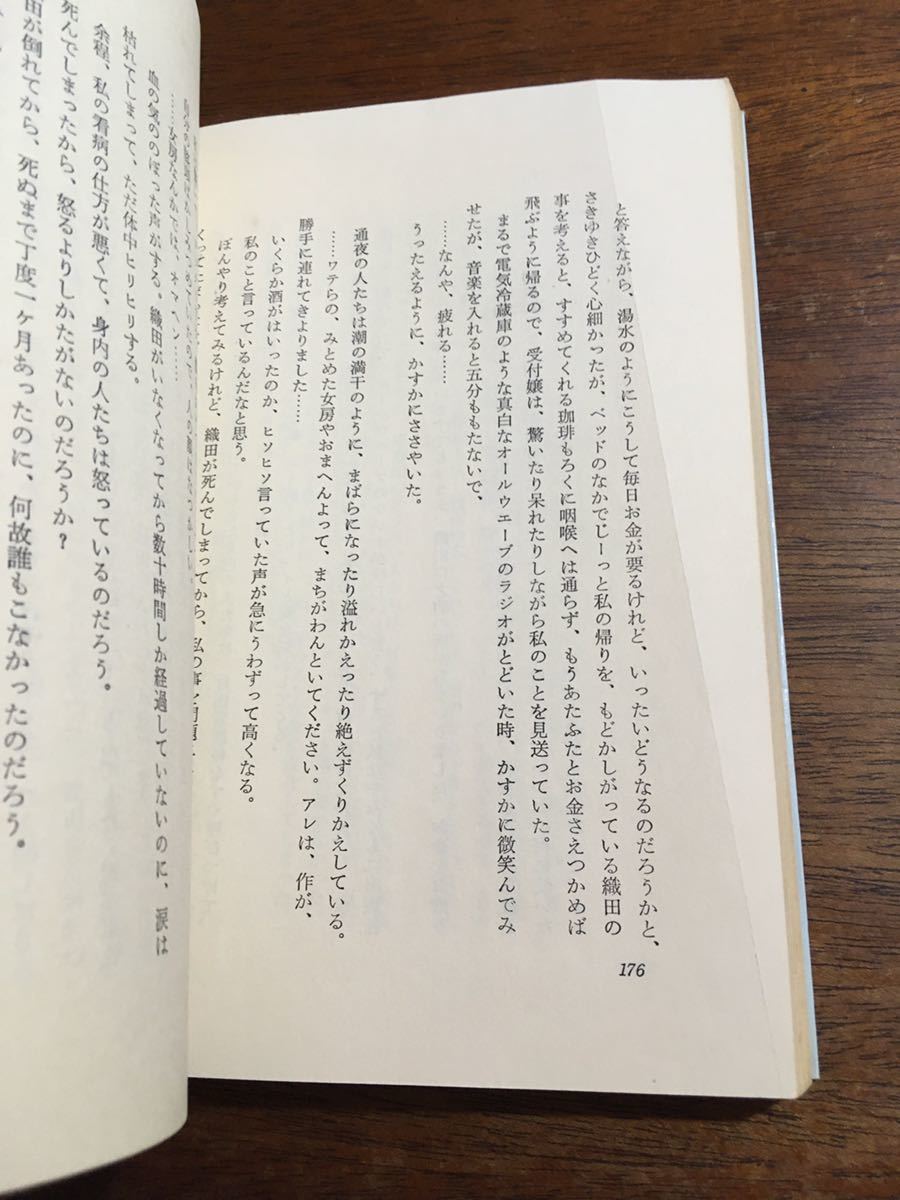 と答えながら、湯水のようにこうして毎日お金が要るけれど、いったいどうなるのだろうかと、
さきゆきひどく心細かったが、ベッドのなかでじーっと私の帰りを、もどかしがっている織田の
事を考えると、すすめてくれる珈琲もろくに咽喉へは通らず、もうあたふたとお金さえつかめば
飛ぶように帰るので、受付嬢は、驚いたり呆れたりしながら私のことを見送っていた。
まるで電気冷蔵庫のような真白なオールウエーブのラジオがとどいた時、かすかに微笑んでみ
せたが、音楽を入れると五分ももたないで、
……なんや、疲れる……
うったえるように、かすかにささやいた。
通夜の人たちは潮の満干のように、まばらになったり溢れかえったり絶えずくりかえしている。
……ワテらの、みとめた女房やおまへんよって、まちがわんといてください。アレは、作が、
勝手に連れてきよりました……
いくらか酒がはいったのか、ヒソヒソ言っていた声が急にうわずって高くなる。
私のこと言っているんだなと思う。
ぼんやり考えてみるけれど、織田が死んでしまってから、私の事を問題に
176
……女房なんかでは、オマヘン……
血の気ののぼった声がする。織田がいなくなってから数十時間しか経過していないのに、涙は
枯れてしまって、ただ体中ヒリヒリする。
余程、私の看病の仕方が悪くて、身内の人たちは怒っているのだろう。
死んでしまったから、怒るよりしかたがないのだろうか？
田が倒れてから、死ぬまで丁度一ヶ月あったのに、何故誰もこなかったのだろう。